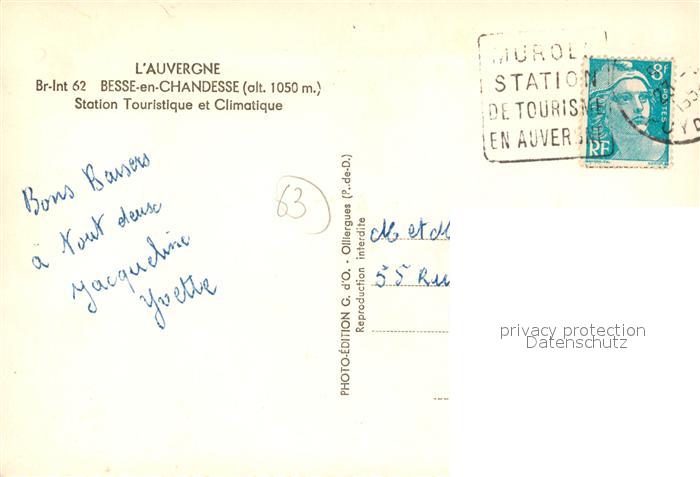 L'AUVERGNE
Br-Int 62 BESSE-en-CHANDESSE (alt. 1050 m.)
Station Touristique et Climatique
MUROL
STATION
DE TOURISME
EN AUVERGNE
8F
POSTES
RF
Bons Baisers
à Tout deux
Jacqueline
Yvette
63
PHOTO-ÉDITION G. d'O. - Olliergues (P.-de-D.)
Reproduction interdite
M et M
55 Rue
privacy protection
Datenschutz